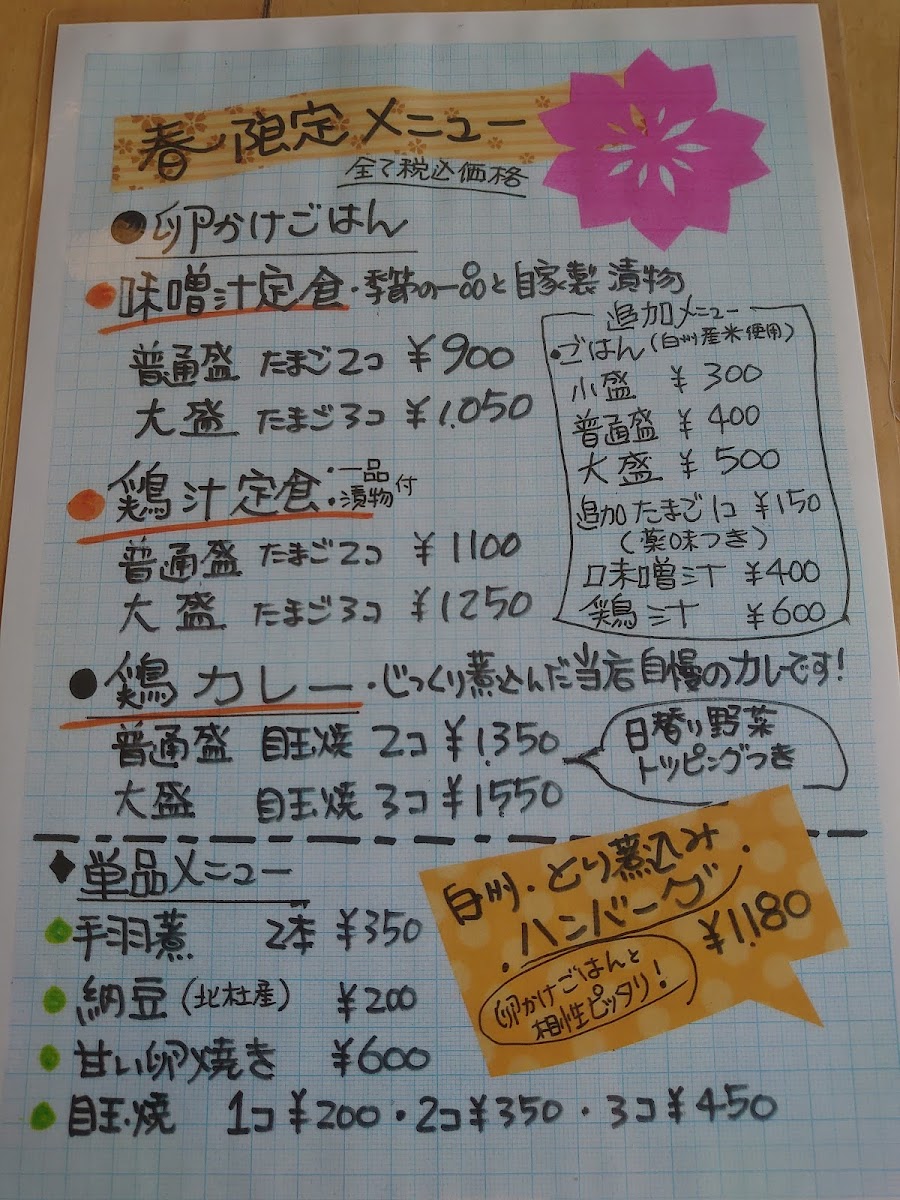 春限定メニュー
全て税込価格
●卵かけごはん
●味噌汁定食・季節の一品と自家製漬物
普通盛 たまご2コ ¥900
大盛 たまご3コ ¥1,050
追加メニュー
・ごはん(白州産米使用)
小盛 ¥300
普通盛 ¥400
大盛 ¥500
追加たまご1コ ¥150
(薬味つき)
味噌汁 ¥400
鶏汁 ¥600
●鶏汁定食・一品・漬物付
普通盛 たまご2コ ¥1100
大盛 たまご3コ ¥1250
●鶏カレー・じっくり煮込んだ当店自慢のカレーです!
普通盛 目玉焼 2コ ¥1,350
大盛 目玉焼 3コ ¥1550
日替り野菜
トッピングつき
◆単品メニュー
手羽煮 2本 ¥350
納豆(北杜産) ¥200
甘い卵焼き ¥600
目玉焼 1コ¥200・2コ¥350・3コ¥450
白州・とり煮込み
・ハンバーグ・
¥1,180
卵かけごはんと
相性ピッタリ!